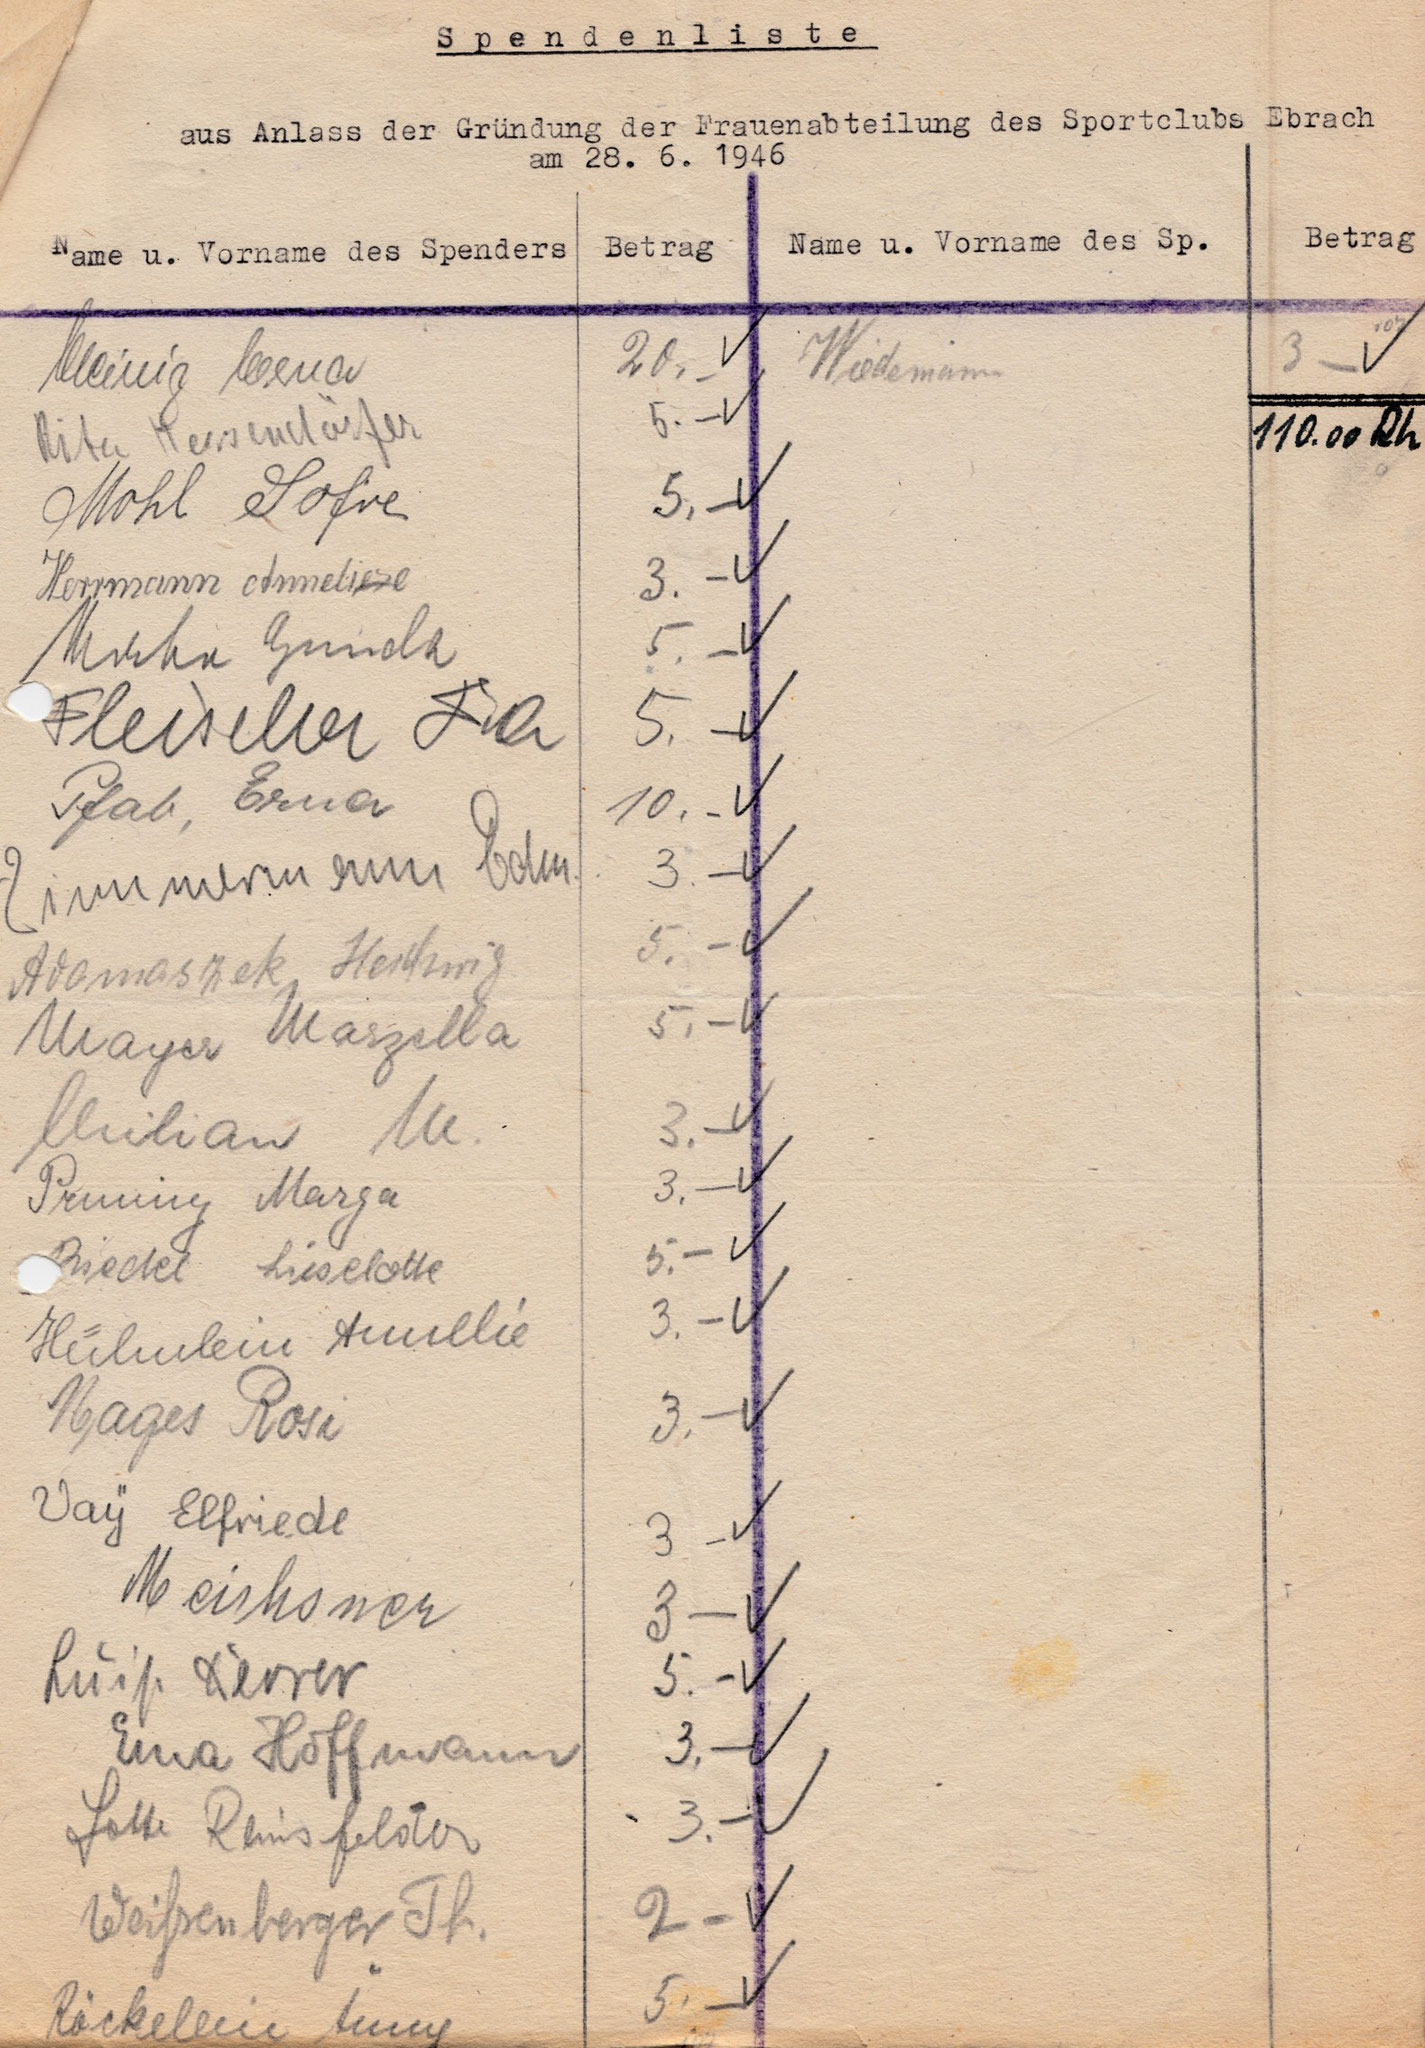 Spendenliste
aus Anlass der Gründung der Frauenabteilung des Sportclubs Ebrach
am 28. 6. 1946
Name u. Vorname des Spenders Betrag Name u. Vorname des Sp. Betrag
20.- Wiedemann 3 -
Rita 5.-
110.00 Rh
Mohl Sofie 5.-
Herrmann Anneliese 3.-
Gunda 5.-
Fleischer 5.-
Pfab, Erna 10.-
Zimmermann 3.-
Adamaszek Hedwig 5.-
Mayer Marzella 5.-
M. 3.-
Marga 3.-
Riedel Lieselotte 5.-
Amellie 3.-
Mages Rosi 3.-
Vaÿ Elfriede 3 -
3 -
5.-
Erna Hoffmann 3.-
Lotte 3.-
Weißenberger Th. 2 -
Röckelein 5.-